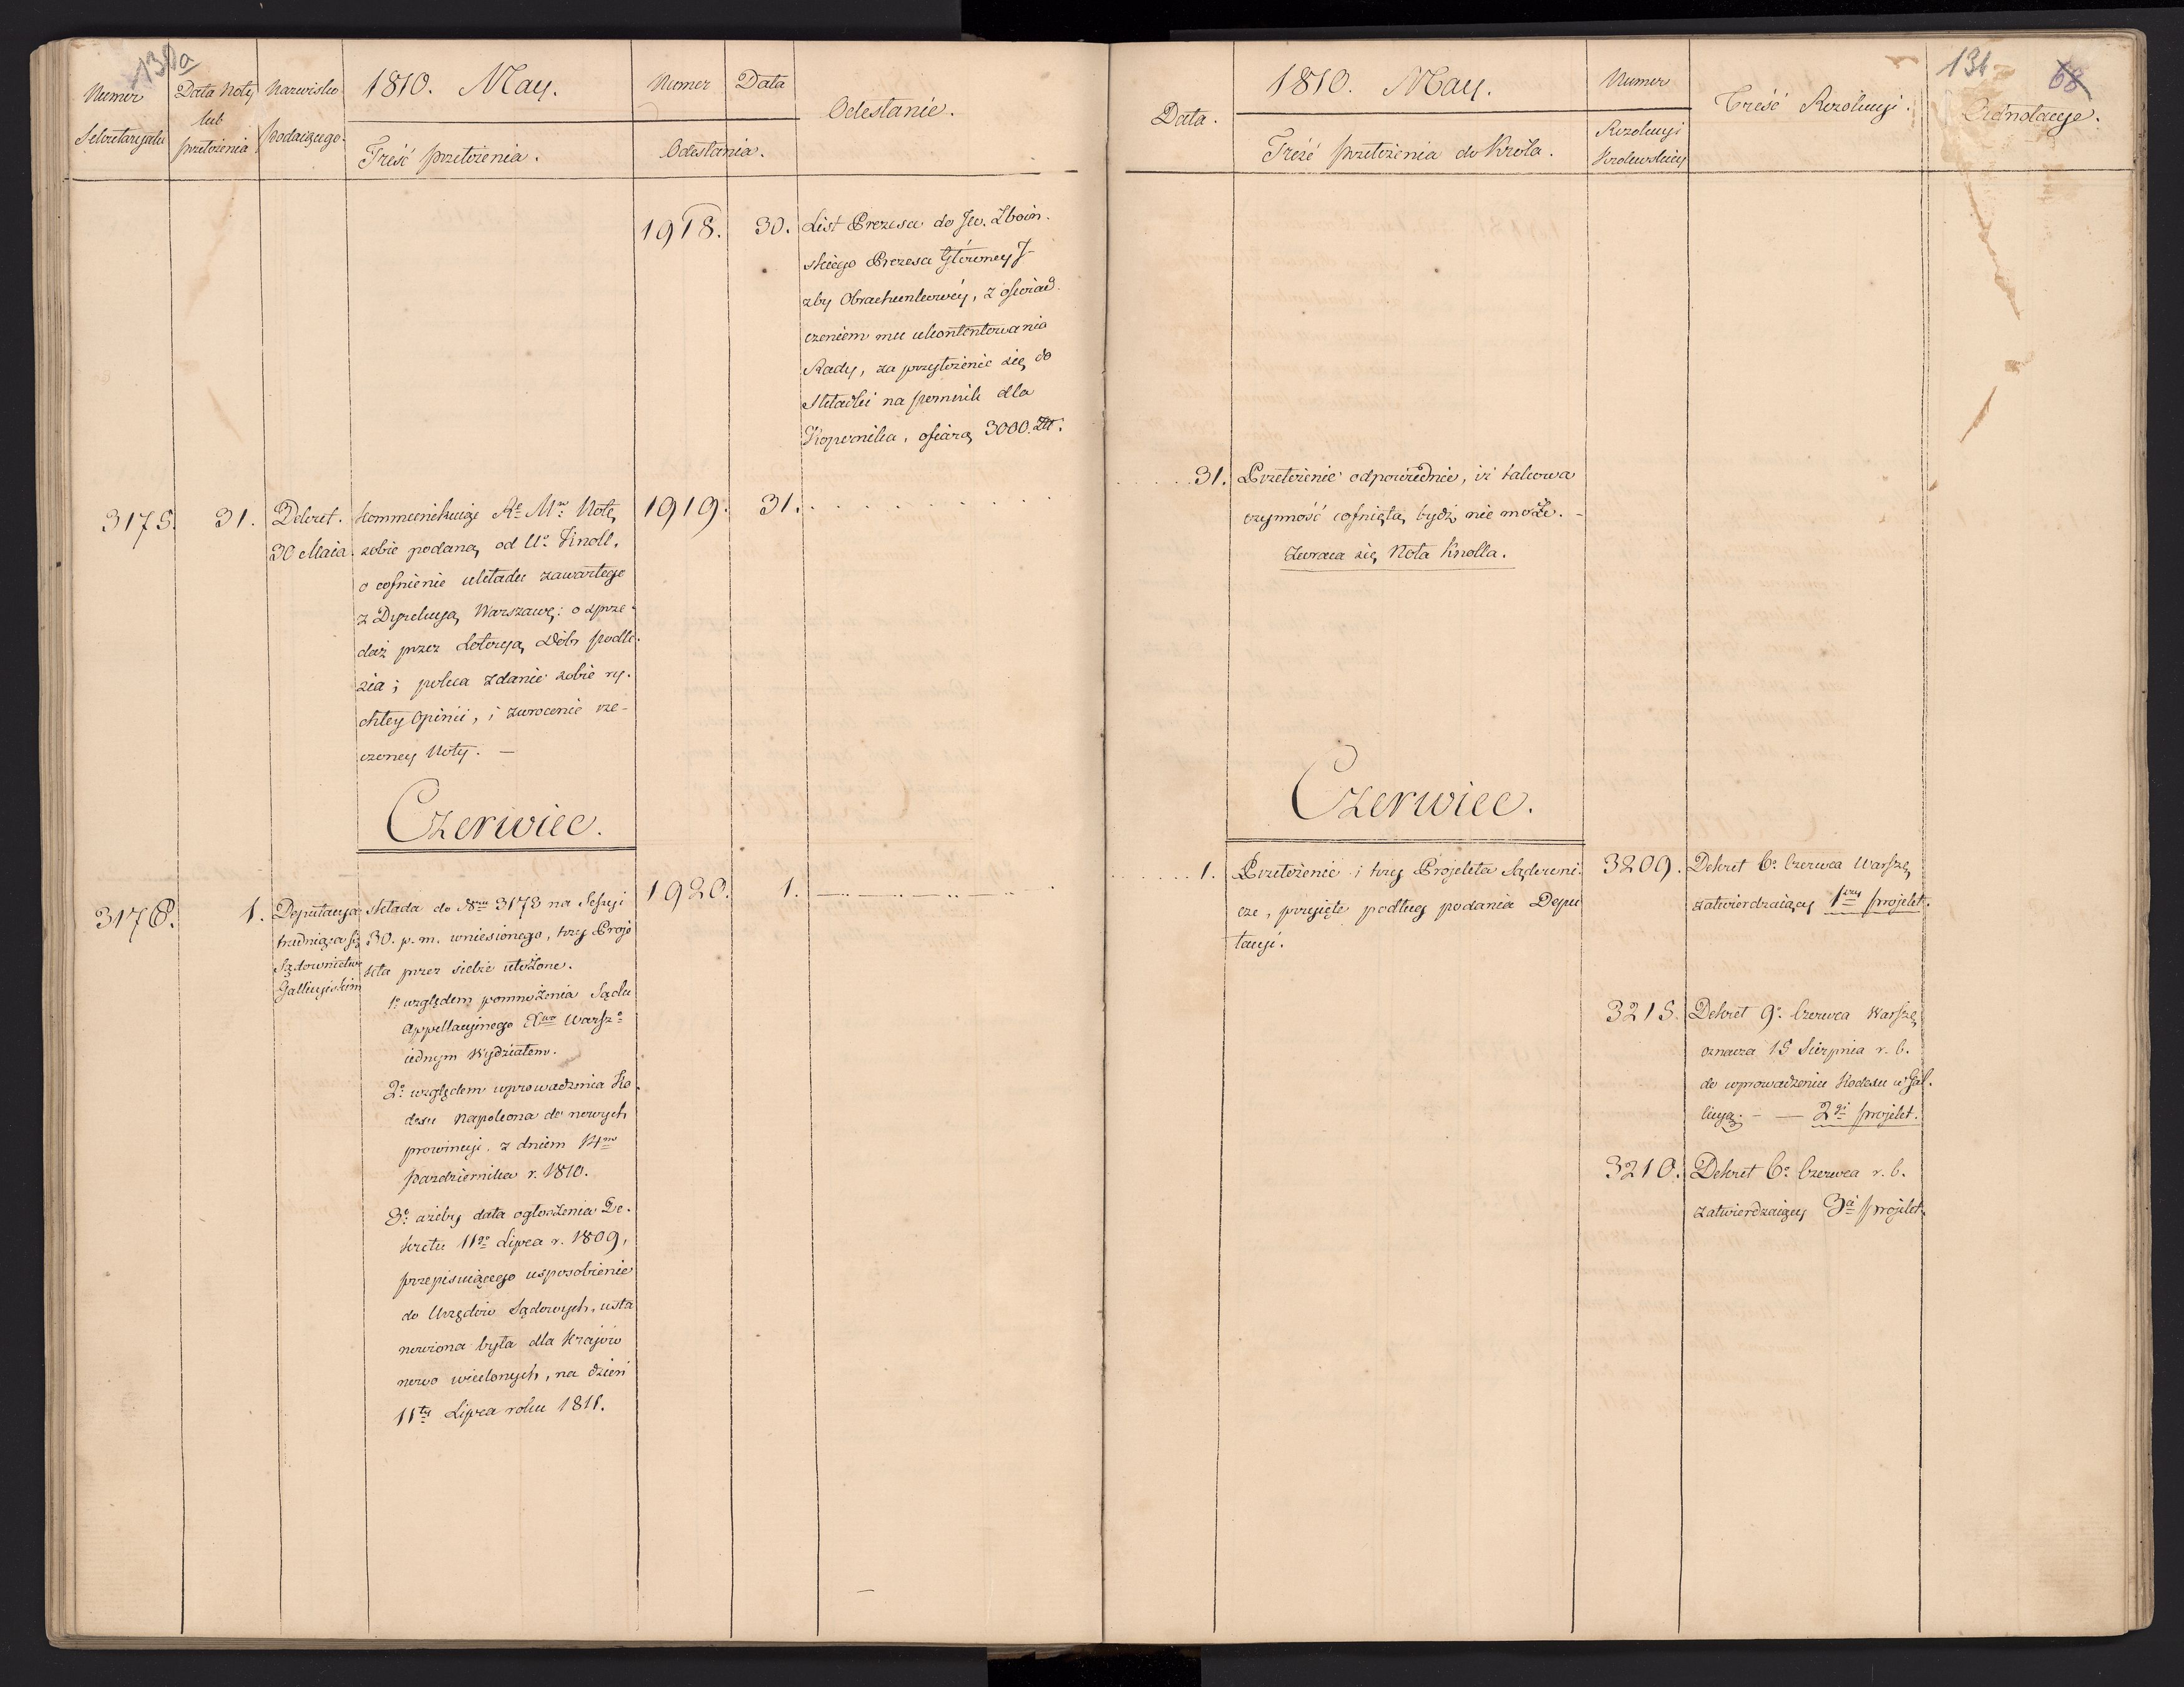 130a
Numer
Sekretaryatu
Data Noty
lub
przełożenia
Nazwisko
podaiącego.
1810. May.
Treść przełożenia.
Numer
Data
Odesłania.
Odesłanie.
1918. 30. List Prezesa do Jw. Zboin-
skiego Prezesa Główney J-
zby Obrachunkowéy, z oświad-
czeniem mu ukontentowania
Rady, za przyłożenie się do
Składki na pomnik dla
Kopernika, ofiarą 3000. Złł.
3175. 31. Dekret.
30 Maia.
kommunikuiąc Notę,
sobie podaną od Knoll,
o cofnienie układu zawartego
z Dyrekcyą Warszawę: o sprze-
daż przez Loteryą Dóbr podle-
sia; poleca zdanie sobie ry-
chłey Opinii, i zwrocenie rze-
czoney Noty. —
1919. 31.
Czerwiec.
3176. 1. Deputacya
trudniąca się
Sądownictwem
Gallicyiskim
składa do Nru 3173 na Sessyi
30. p. m. wniesionego, trzy Proje
kta przez siebie ułożone.
1o względem pomnożenia Sądu
Appellacyinego Xwa Warszo
iednym Wydziałem.
2o względem wprowadzenia Ko-
dexu Napoleona do nowych
prowincyi, z dniem
pazdziernika r. 1810.
3o ażeby data ogłoszenia De-
kretu 11go Lipca r. 1809,
przepisuiącego usposobienie
do Urzędów Sądowych, usta
nowiona była dla Kraiów
nowo wcielonych, na dzień
11ty Lipca roku 1811.
1920. 1.
131
68
Data.
1810. May.
Treść przełożenia do Króla.
Numer
Rezolucyi
Krolewskiey
Treść Rezolucyi.
Adnotacye.
31. Przełożenie odpowiednie, iż takowa
czynność cofniętą bydź nie może. -
Zwraca się Nota Knolla.
Czerwiec.
1. Przełożenie i trzy Projekta Sądowni-
cze, przyięte podług podania Depu
tacyi.
3209. Dekret 6o Czerwca Warszę
zatwierdzaiący 1szy projekt.
3215. Dekret 9o Czerwca Warszę
oznacza 15 Sierpnia r. b.
do wprowadzenia Kodexu w Gal-
licyą. - — 2gi projekt.
3210. Dekret 6o Czerwca r. b.
zatwierdzaiący 3ci projekt.